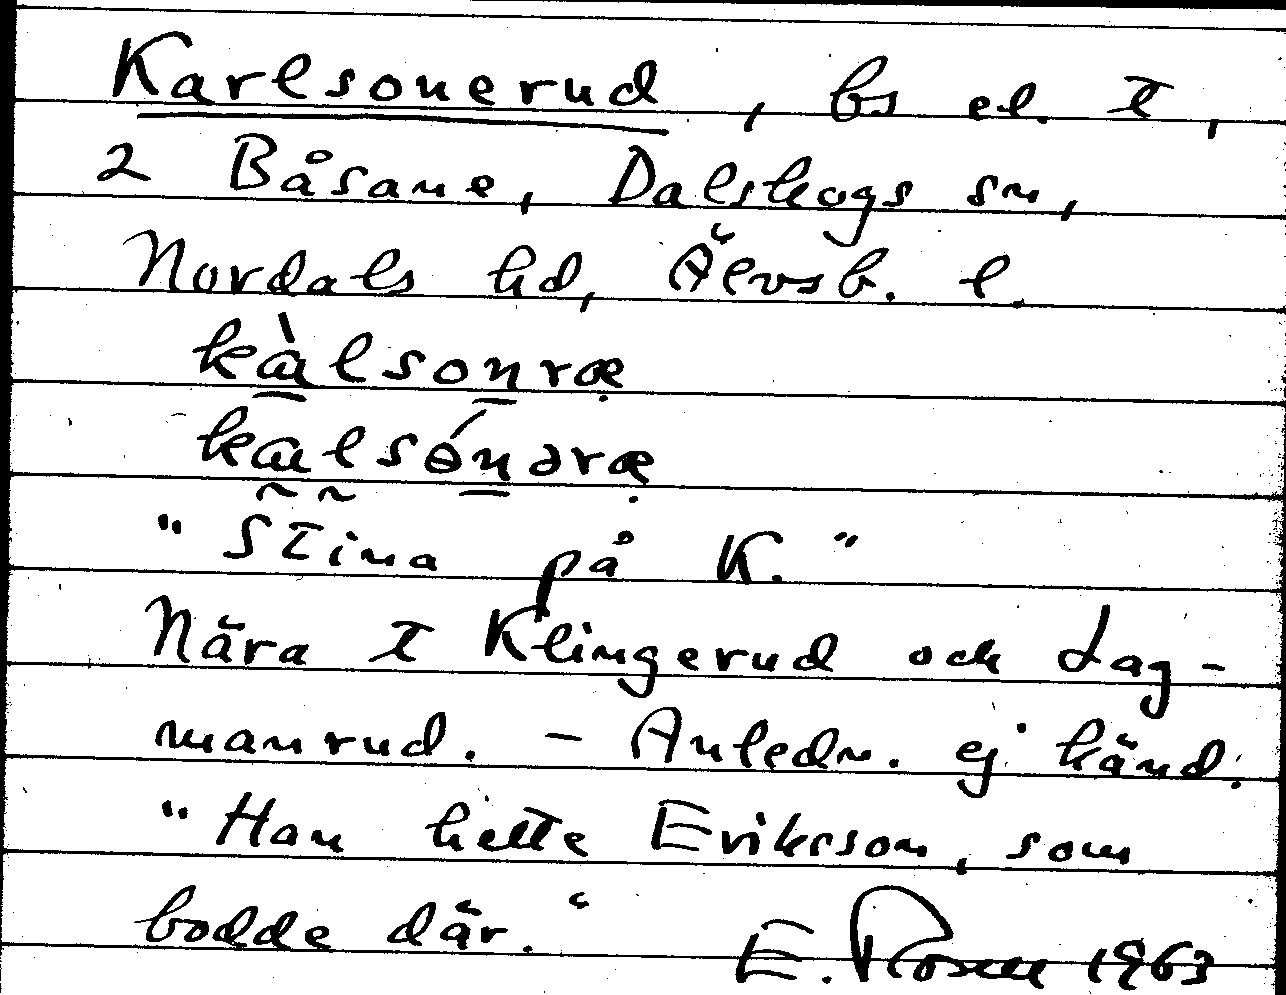 Karlsonerud, bs el. t,
2 Båsane, Dalskogs sn,
Nordals hd, Älvsb. l.
kàlsonræ
kalsónəræ
"Stina på K."
Nära t Klingerud och Lag-
manrud. - Anledn. ej känd.
"Han hette Eriksson, som
bodde där." E. Rosell 1963